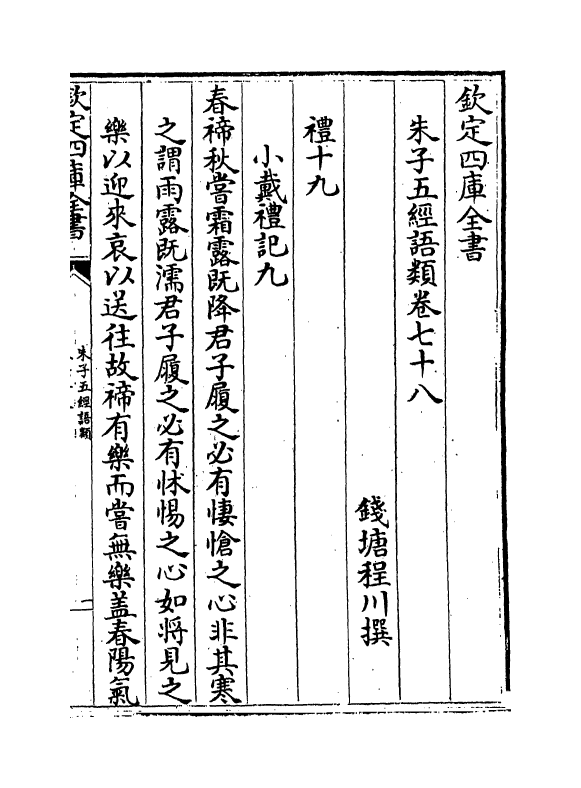 欽定四庫全書
朱子五經語類卷七十八
錢塘程川撰
禮十九
小戴禮記九
春禘秋嘗霜露既降君子履之必有悽愴之心非其寒
之謂雨露既濡君子履之必有怵惕之心如將見之
樂以迎來哀以送往故禘有樂而嘗無樂盖春陽氣
欽定四庫全書
朱子五經語類
一